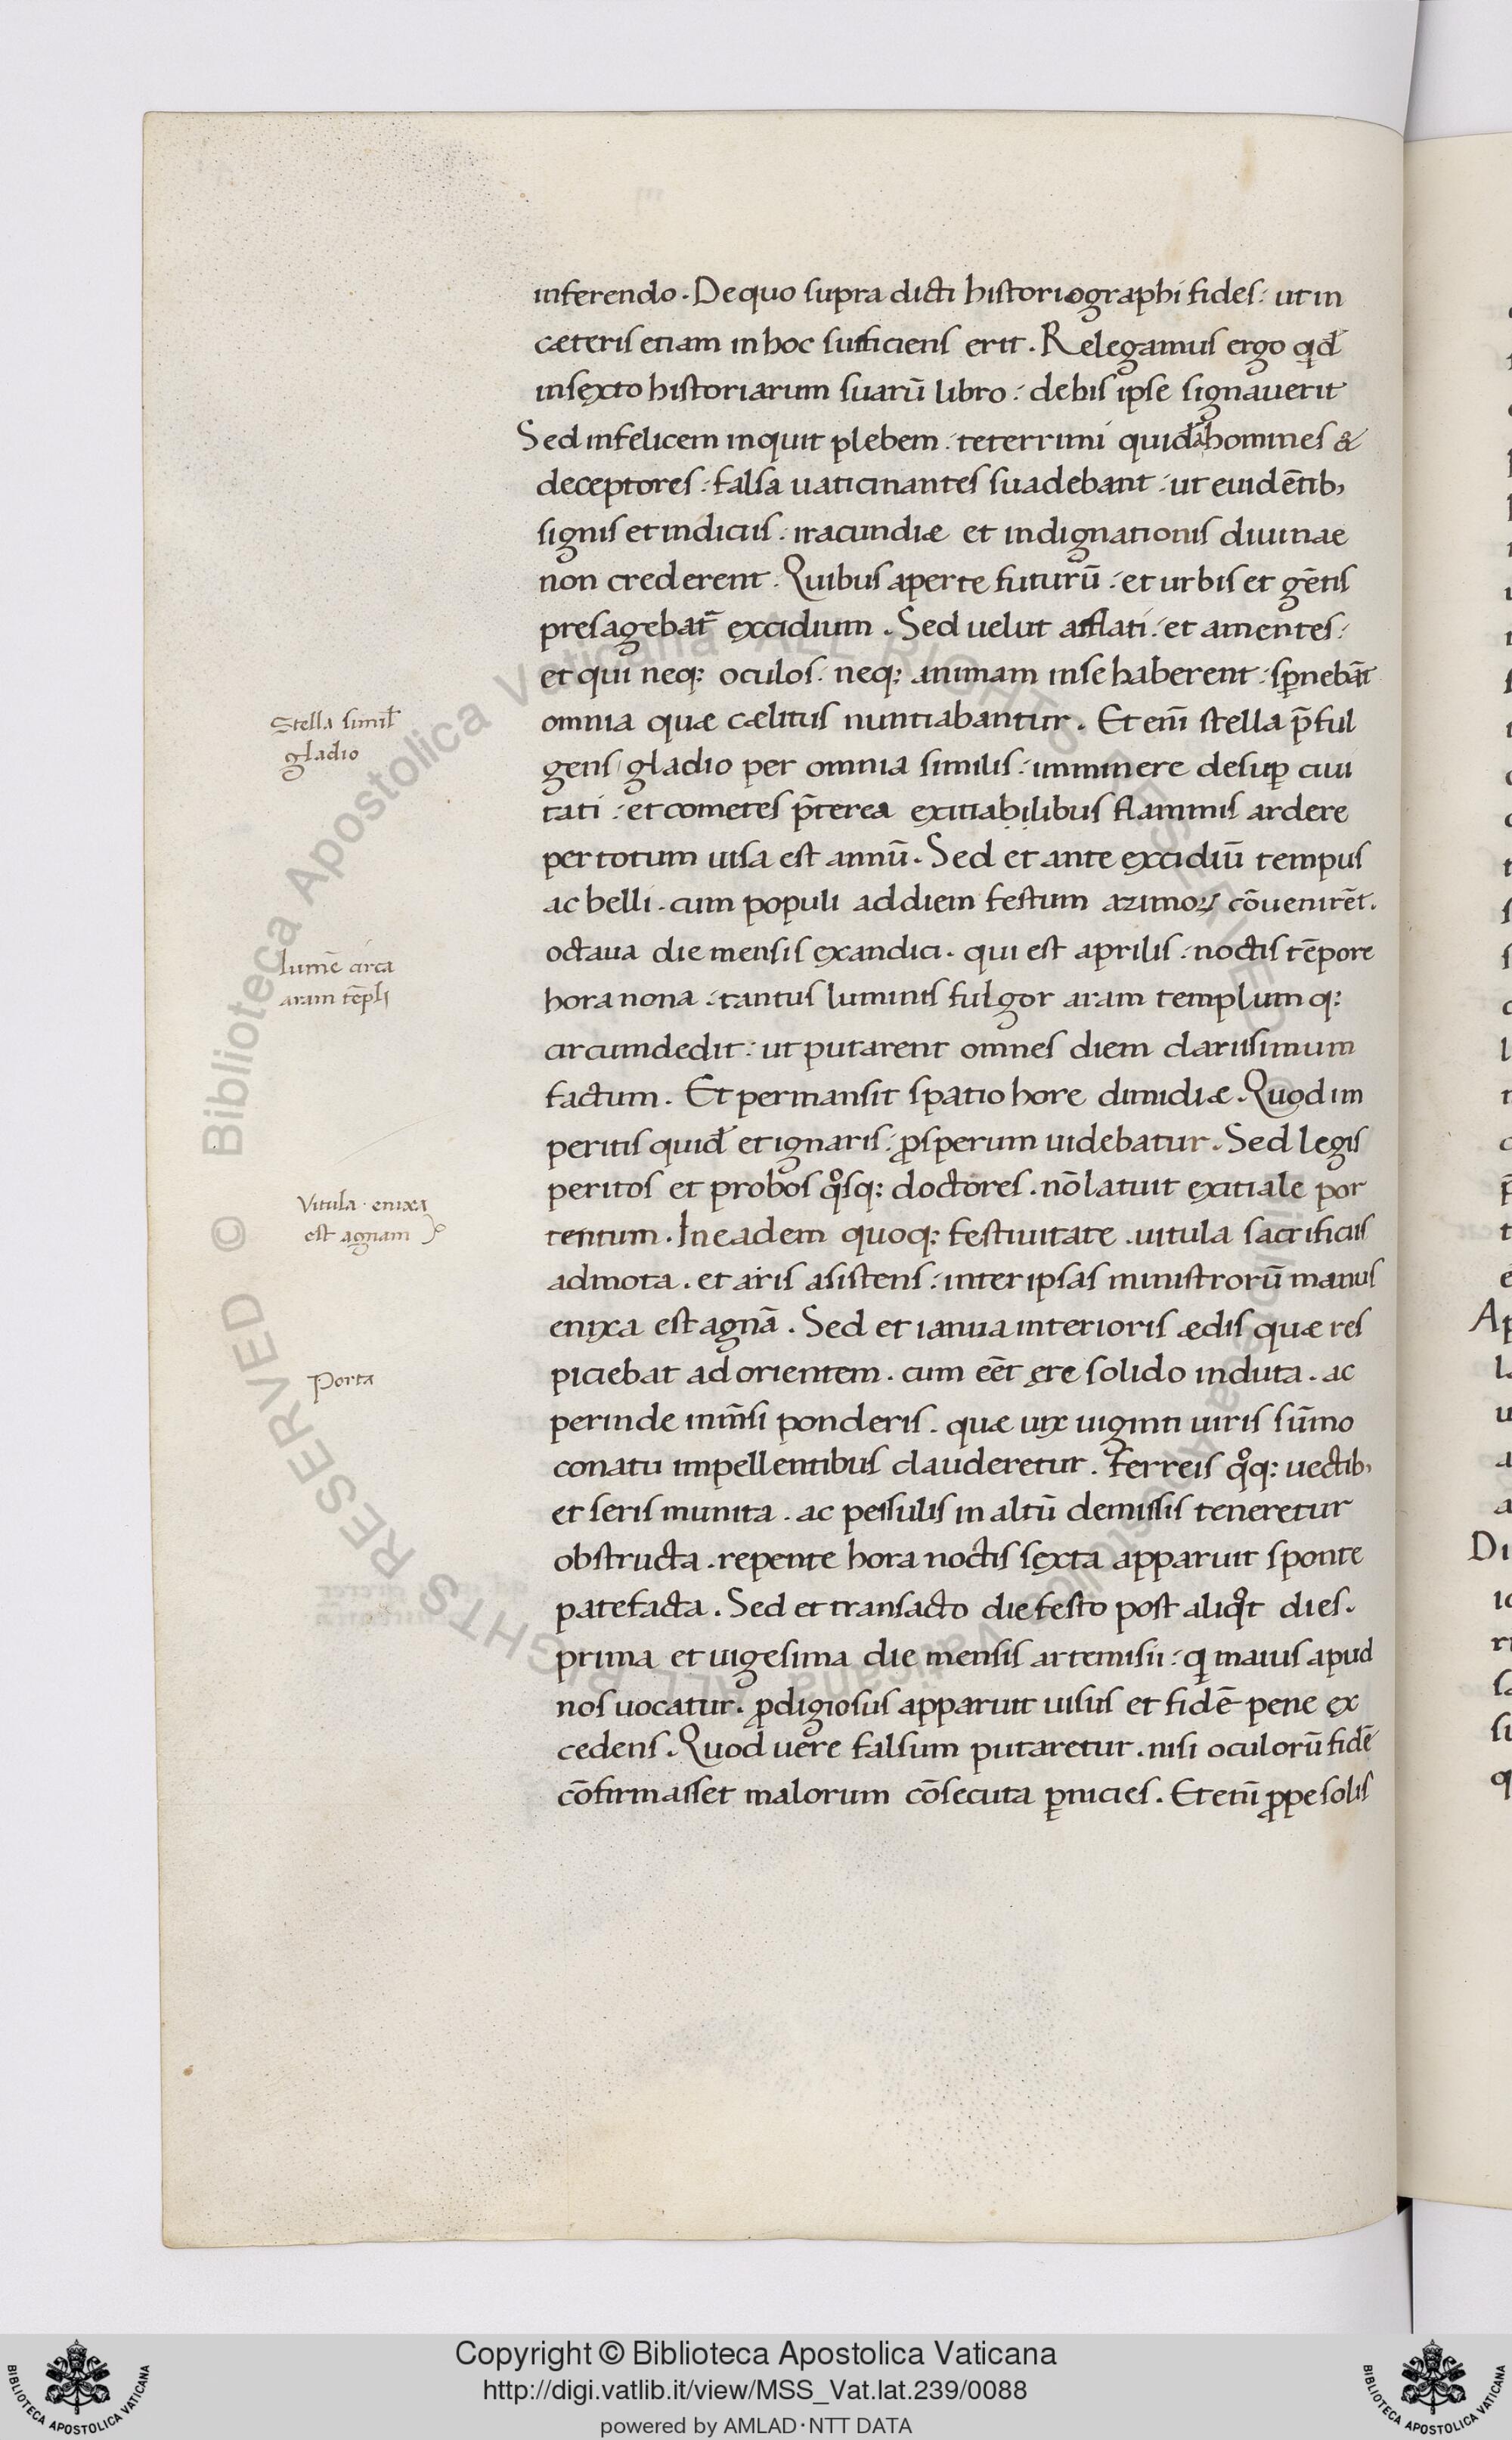 inferendo. De quo supra dicti historiographi fides: ut in
cæteris etiam in hoc sufficiens erit. Relegamus ergo qd̄
in sexto historiarum suarū libro: de his ipse signauerit
Sed infelicem inquit plebem: teterrimi quidā homines &
deceptores: falsa uaticinantes suadebant: ut euidētib;
signis et indiciis: iracundiæ et indignationis diuinae
non crederent. Quibus aperte futurū: et urbis et gētis
presagebat̄ excidium. Sed uelut afflati: et amentes:
et qui neq; oculos: neq; animam in se haberent: sꝑnebāt
omnia quæ cælitus nuntiabantur. Et eni̅ stella p̄ful
gens gladio per omnia similis: imminere desuꝑ ciui
tati: et cometes p̄terea exitiabilibus flammis ardere
per totum uisa est annū. Sed et ante excidiū tempus
ac belli. cum populi ad diem festum azimoꝝ cōuenirēt.
octaua die mensis exandici. qui est aprilis: noctis tēpore
hora nona: tantus luminis fulgor aram templumq;
circumdedit: ut putarent omnes diem clarissimum
factum. Et permansit spatio hore dimidiæ. Quod im
peritis quid̄ et ignaris: ꝓsperum uidebatur. Sed legis
peritos et probos qͦsq; doctores. nō latuit exitiale por
tentum. In eadem quoq; festiuitate. uitula sacrificiis
admota. et aris asistens: inter ipsas ministrorū manus
enixa est agnā. Sed et ianua interioris ædis quæ res
piciebat ad orientem. cum eēt ęre solido induta. ac
perinde inm̄si ponderis. quæ uix uiginti uiris sūmo
conatu impellentibus clauderetur. Ferreis qͦq; uectib;
et seris munita. ac pessulis in altū demissis teneretur
obstructa. repente hora noctis sexta apparuit sponte
patefacta. Sed et transacto die festo post aliqͦt dies.
prima et uigesima die mensis artemisii: ꝗ maius apud
nos uocatur. ꝓdigiosus apparuit uisus et fidē pene ex
cedens. Quod uere falsum putaretur. nisi oculorū fidē
cōfirmasset malorum cōsecuta ꝑnicies. Et eni̅ ꝓpe solis
Stella simil̄
gladio
lumē circa
aram tēpli
Vitula. enixa
est agnam
Porta
© Biblioteca Apostolica Vaticana ALL RIGHTS RESERVED
Copyright © Biblioteca Apostolica Vaticana
http://digi.vatlib.it/view/MSS_Vat.lat.239/0088
powered by AMLAD·NTT DATA
BIBLIOTECA APOSTOLICA VATICANA
BIBLIOTECA APOSTOLICA VATICANA